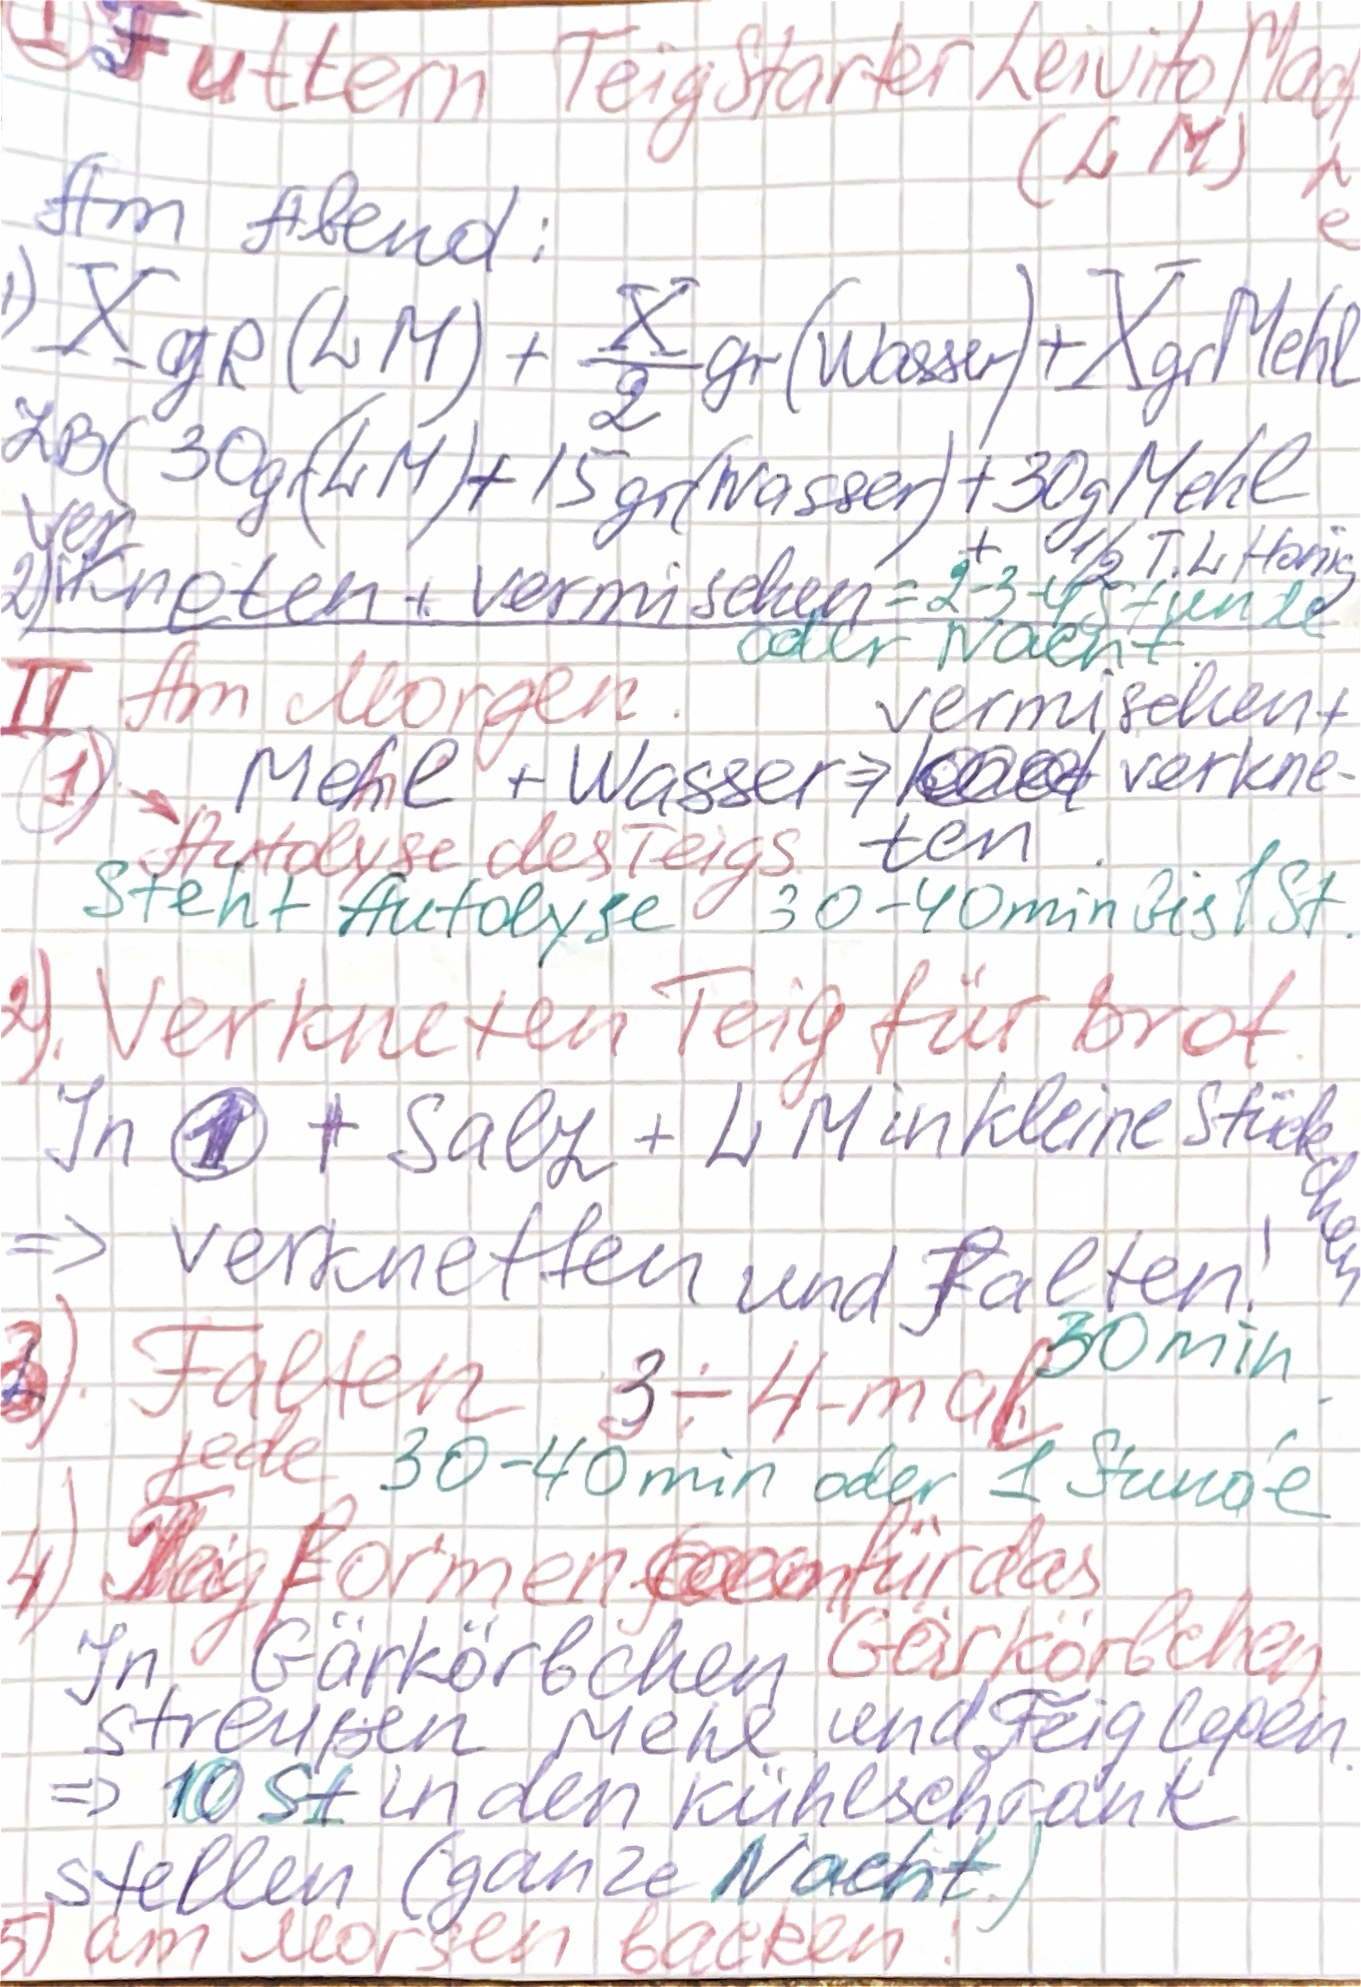 I Futtern Teig Starter Leivito Mad
(LM) re
Am Abend:
1) X gR (LM) + X/2 gr (Wasser) + X gr Mehl
ZB (30gr (LM) + 15 gr (Wasser) + 30g Mehl
+ 1/2 T.L Honig
2) ver Kneten + vermischen = 2-3-4 Stunde
oder Nacht.
II Am Morgen.
1) Mehl + Wasser => vermischen + verkneten.
Autolyse des Teigs
Steht Autolyse 30-40min bis 1 St.
2). Verkneten Teig für brot.
In 1 + Salz + LM in kleine Stückchen
=> verknetten und Falten!
30 min.
3). Falten 3÷4-mal
jede 30-40min oder 1 Stunde
4) Teig formen für das
Gärkörbchen
In Gärkörbchen
streußen Mehl und Teig legen.
=> 10 St in den Kühlschrank
stellen (ganze Nacht.)
5) am Morgen backen!